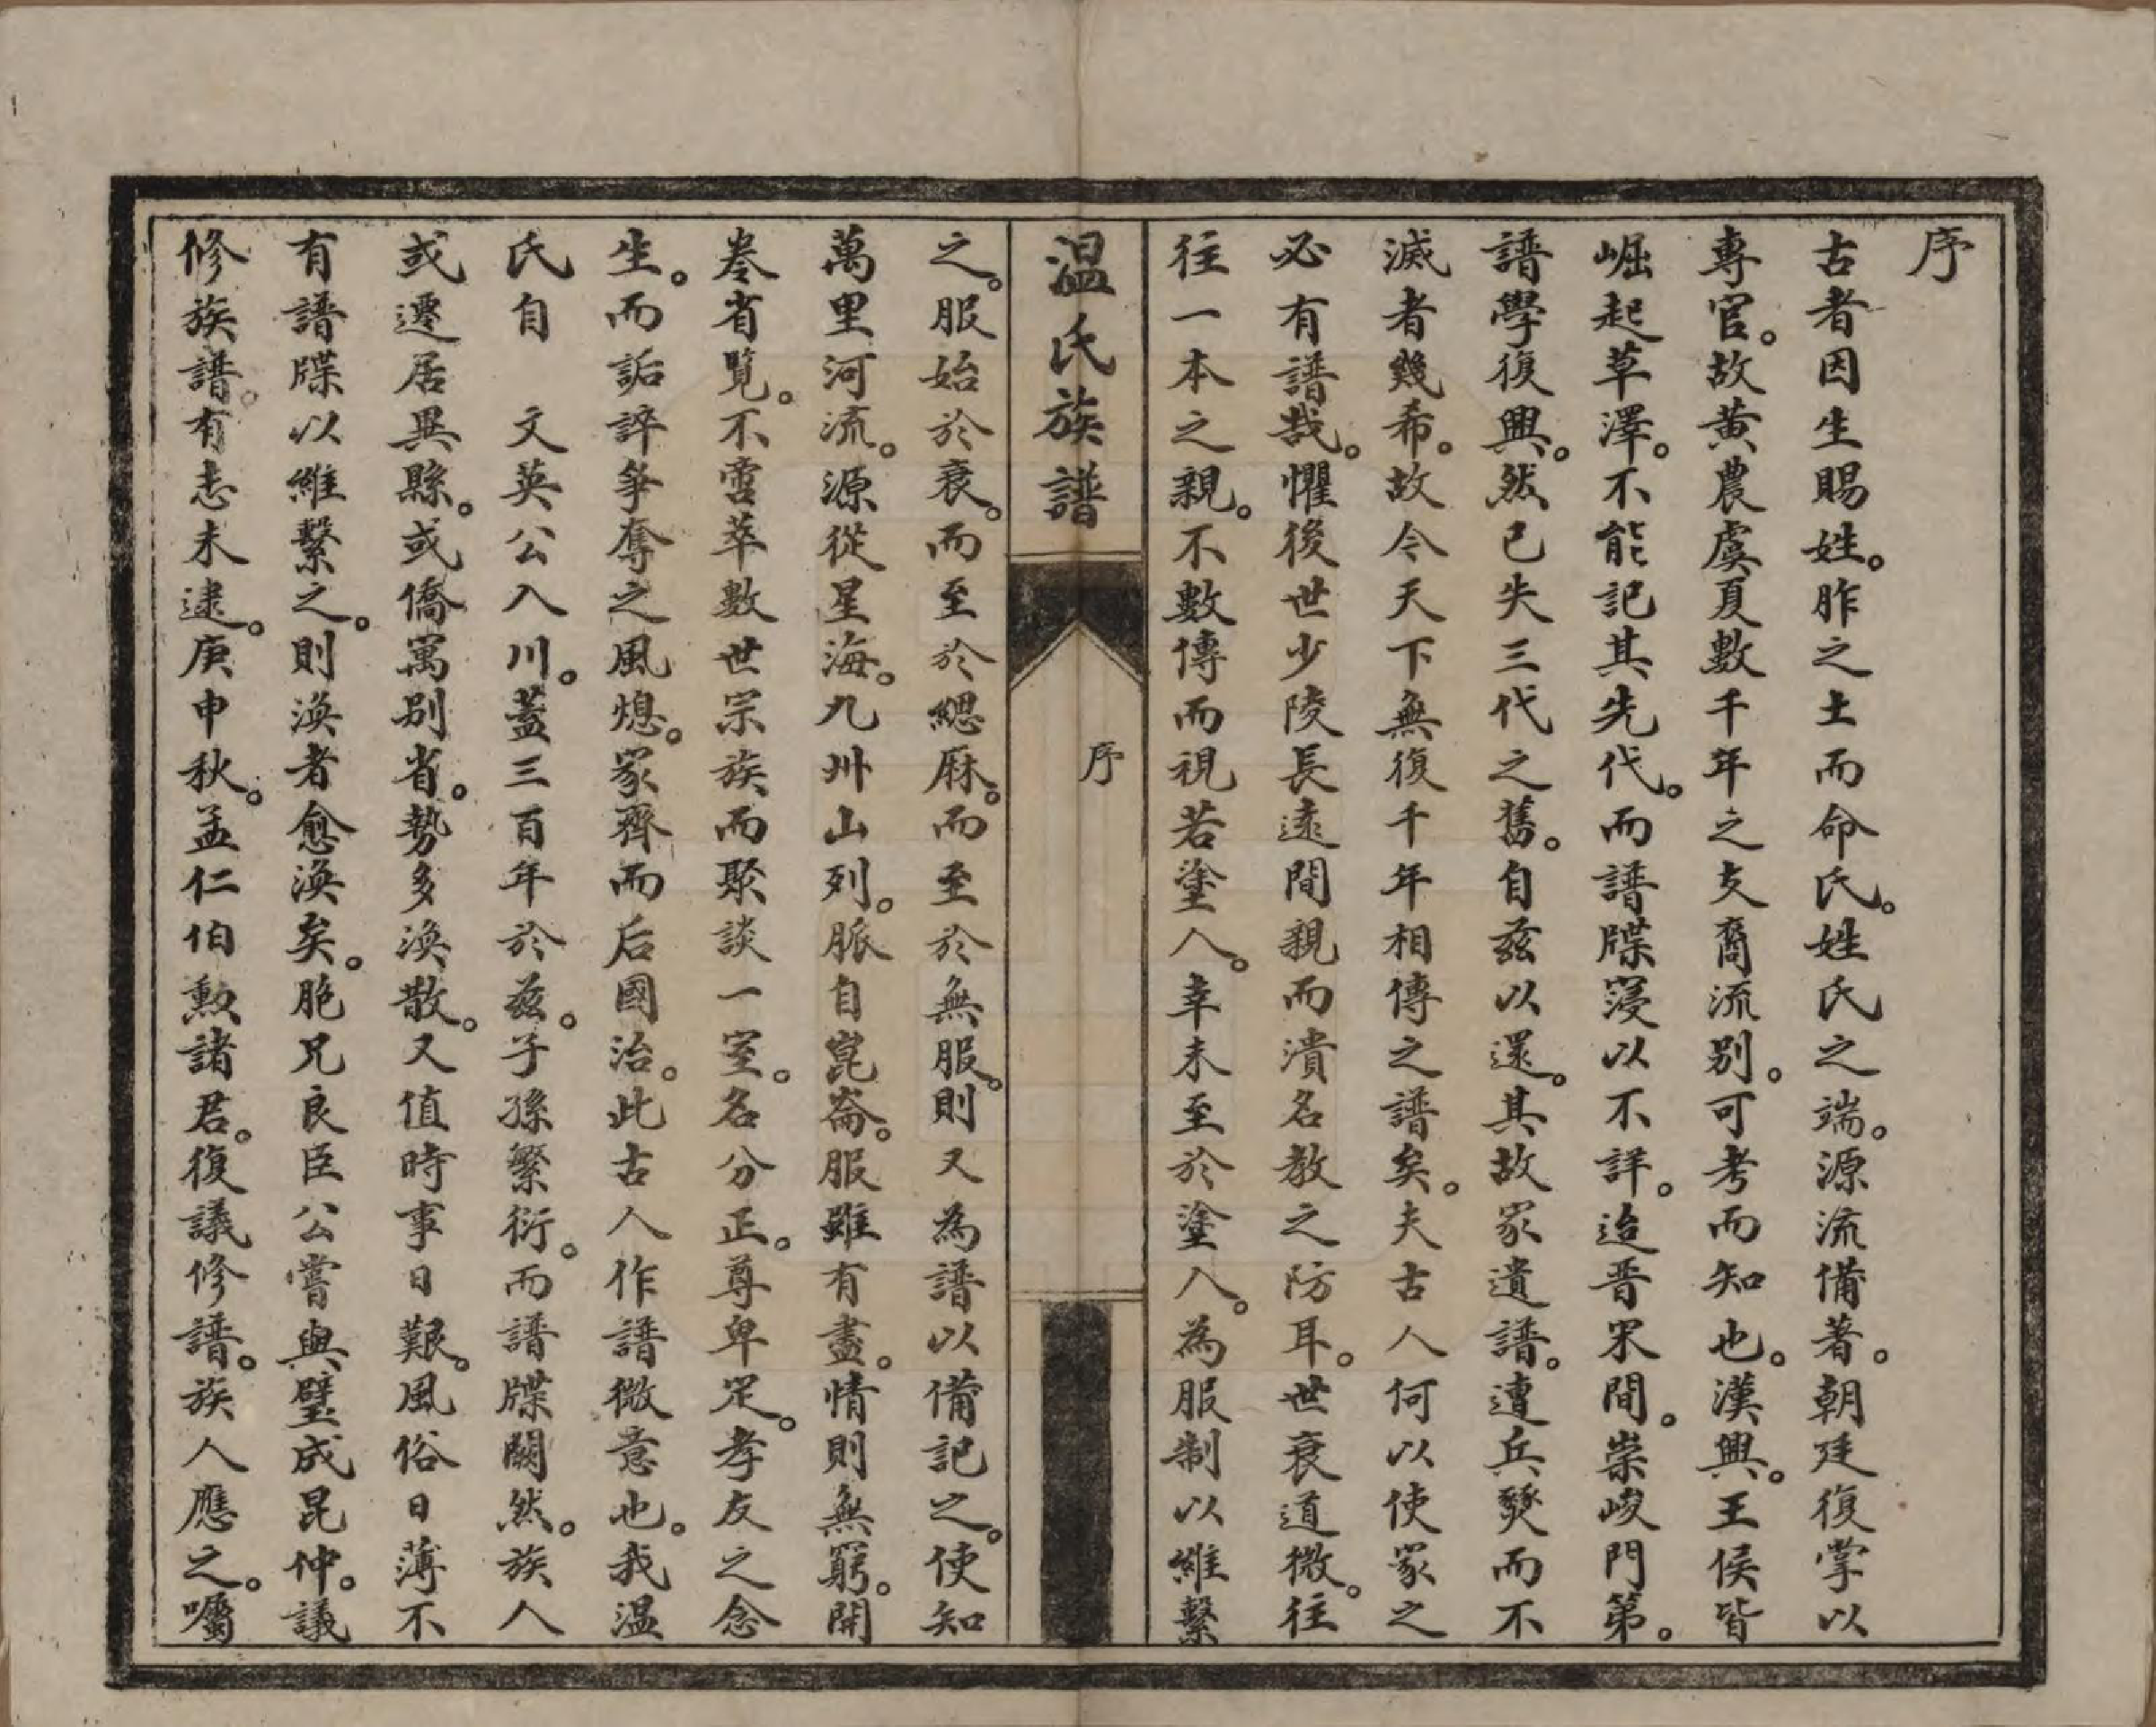 序
古者因生賜姓。胙之土而命氏。姓氏之端。源流備著。朝廷復掌以
專官。故黃農虞夏數千年之支裔流別。可考而知也。漢興。王侯皆
崛起草澤。不能記其先代。而譜牒寖以不詳。迨晋宋間。崇峻門第。
譜學復興。然已失三代之舊。自茲以還。其故家遺譜。遭兵燹而不
滅者幾希。故今天下無復千年相傳之譜矣。夫古人何以使家之
必有譜哉。懼後世少陵長遠間親而潰名教之防耳。世衰道微。往
往一本之親。不數傳而視若塗人。幸未至於塗人。為服制以維繫
温氏族譜
序
之。服始於衰。而至於緦麻。而至於無服。則又為譜以備記之。使知
萬里河流。源從星海。九州山列。脈自崑崙。服雖有盡。情則無窮。開
卷省覽。不啻萃數世宗族而聚談一室。名分正。尊卑定。孝友之念
生。而詬誶爭奪之風熄。家齊而后國治。此古人作譜微意也。我温
氏自　文英公入川。蓋三百年於茲。子孫繁衍。而譜牒闕然。族人
或遷居異縣。或僑寓別省。勢多渙散。又值時事日艱。風俗日薄不
有譜牒以維繫之。則渙者愈渙矣。胞兄良臣公嘗與璧成昆仲。議
修族譜。有志未逮。庚申秋。孟仁伯勲諸君。復議修譜。族人應之。囑